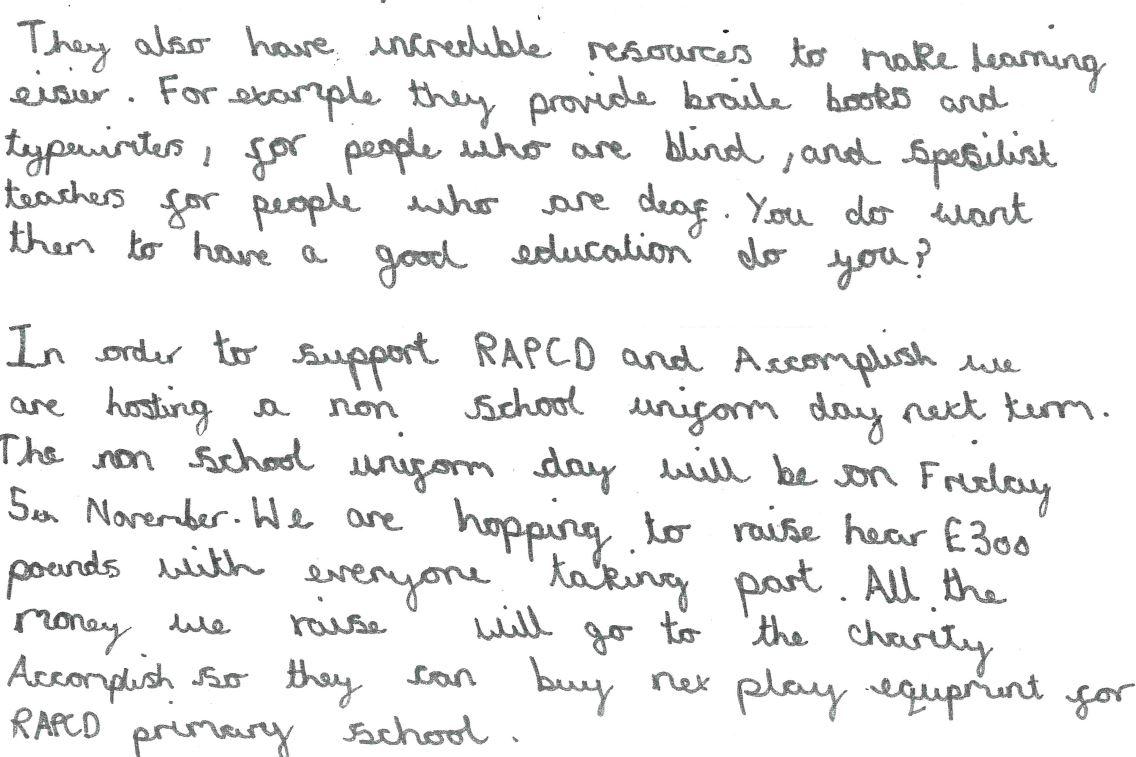 They also have incredible resources to make learning
eisier. For example they provide braile books and
typewriters, for people who are blind, and spesilist
teachers for people who are deaf. You do want
them to have a good education do you?
In order to support RAPCD and Accomplish we
are hosting a non school uniform day next term.
The non school uniform day will be on Friday
5th November. We are hopping to raise hear £300
pounds with everyone taking part. All the
money we raise will go to the charity
Accomplish so they can buy nex play equpment for
RAPCD primary school.